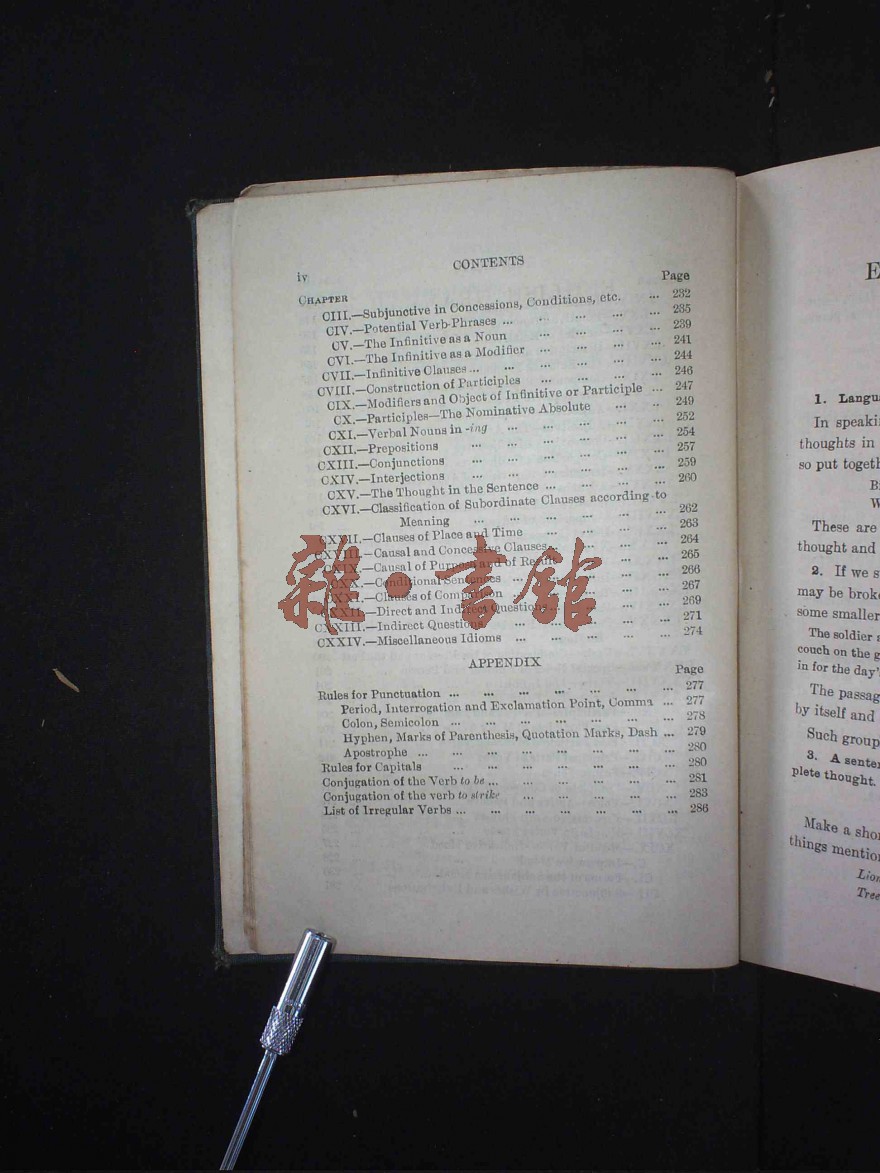 iv
CONTENTS
CHAPTER Page
CIII.—Subjunctive in Concessions, Conditions, etc. ... 232
CIV.—Potential Verb-Phrases ... ... ... ... ... 235
CV.—The Infinitive as a Noun ... ... ... ... 239
CVI.—The Infinitive as a Modifier ... ... ... ... 241
CVII.—Infinitive Clauses ... ... ... ... ... ... 244
CVIII.—Construction of Participles ... ... ... ... 246
CIX.—Modifiers and Object of Infinitive or Participle ... 247
CX.—Participles—The Nominative Absolute ... ... 249
CXI.—Verbal Nouns in -ing ... ... ... ... ... 252
CXII.—Prepositions ... ... ... ... ... ... 254
CXIII.—Conjunctions ... ... ... ... ... ... 257
CXIV.—Interjections ... ... ... ... ... ... 259
CXV.—The Thought in the Sentence ... ... ... ... 260
CXVI.—Classification of Subordinate Clauses according to
Meaning ... ... ... ... ... ... 262
CXVII.—Clauses of Place and Time ... ... ... ... 263
CXVIII.—Causal and Concessive Clauses ... ... ... 264
CXIX.—Causal of Purpose and of Result ... ... ... 265
CXX.—Conditional Sentences ... ... ... ... ... 266
CXXI.—Clauses of Comparison ... ... ... ... 267
CXXII.—Direct and Indirect Questions ... ... ... 269
CXXIII.—Indirect Questions ... ... ... ... ... 271
CXXIV.—Miscellaneous Idioms ... ... ... ... ... 274
APPENDIX
Page
Rules for Punctuation ... ... ... ... ... ... ... 277
Period, Interrogation and Exclamation Point, Comma ... 277
Colon, Semicolon ... ... ... ... ... ... ... 278
Hyphen, Marks of Parenthesis, Quotation Marks, Dash ... 279
Apostrophe ... ... ... ... ... ... ... ... 280
Rules for Capitals ... ... ... ... ... ... ... 280
Conjugation of the Verb to be ... ... ... ... ... ... 281
Conjugation of the verb to strike ... ... ... ... ... 283
List of Irregular Verbs ... ... ... ... ... ... ... 286
雜·書館
E
1. Langu
In speaki
thoughts in
so put togeth
B
W
These are
thought and
2. If we s
may be broke
some smaller
The soldier
couch on the g
in for the day'
The passag
by itself and
Such group
3. A senten
plete thought.
Make a shor
things mention
Lion
Tree